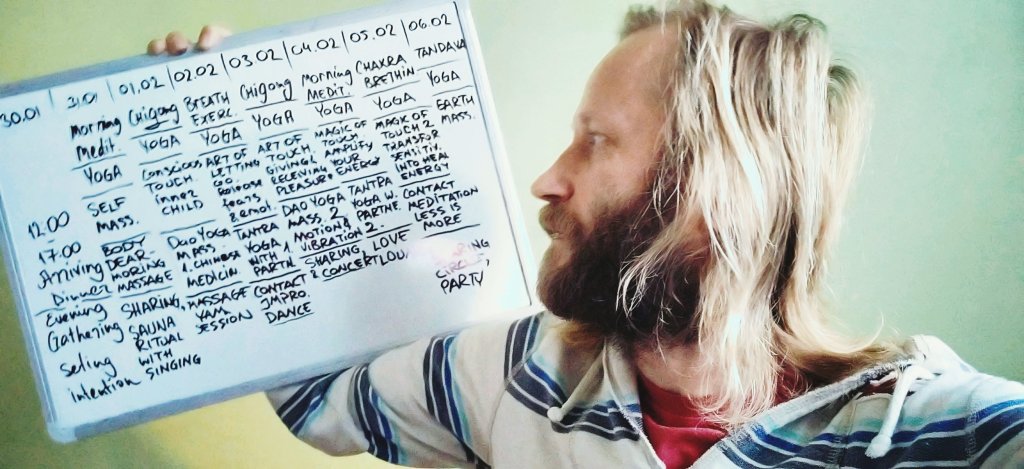 30.01 | 31.01 | 01.02 | 02.02 | 03.02 | 04.02 | 05.02 | 06.02
12.00
17.00
Arriving
Dinner
Evening
Gathering
seling
intention
Morning
Medit.
YOGA
SELF
MASS.
BODY
DEAR-
MORING
MASSAGE
SHARING,
SAUNA
RITUAL
WITH
SINGING
Chigong
YOGA
Conscious
TOUCH.
inner
CHILD
Dao YOGA
MASS.
1. CHINESE
MEDICIN
MASSAGE
YAM
SESSION
BREATH
EXERC.
YOGA
ART OF
LETTING
GO
Release
fears
&emot.
TANTRA
YOGA
WITH
PARTN
CONTACT
IMPRO.
DANCE
Chigong
YOGA
ART OF
TOUCH,
GIVING&
RECEIVING
PLEASURE
DAO YOGA
MASS. 2
MOTION&
VIBRATION
SHARING,
& CONCERT
Morning
MEDIT.
YOGA
MAGIC OF
TOUCH,
AMPLIFY
YOUR
ENERGY
TANTRA
YOGA W.
PARTNE
2.
LOVE
CHAKRA
BRETHIN
YOGA
MAGIC OF
TOUCH 2
TRANSFOR
SENSITIV.
INTO HEAL
ENERGY
CONTACT
MEDITATION
LESS IS
MORE
TANDAVA
YOGA
EARTH
MASS.
PARTY